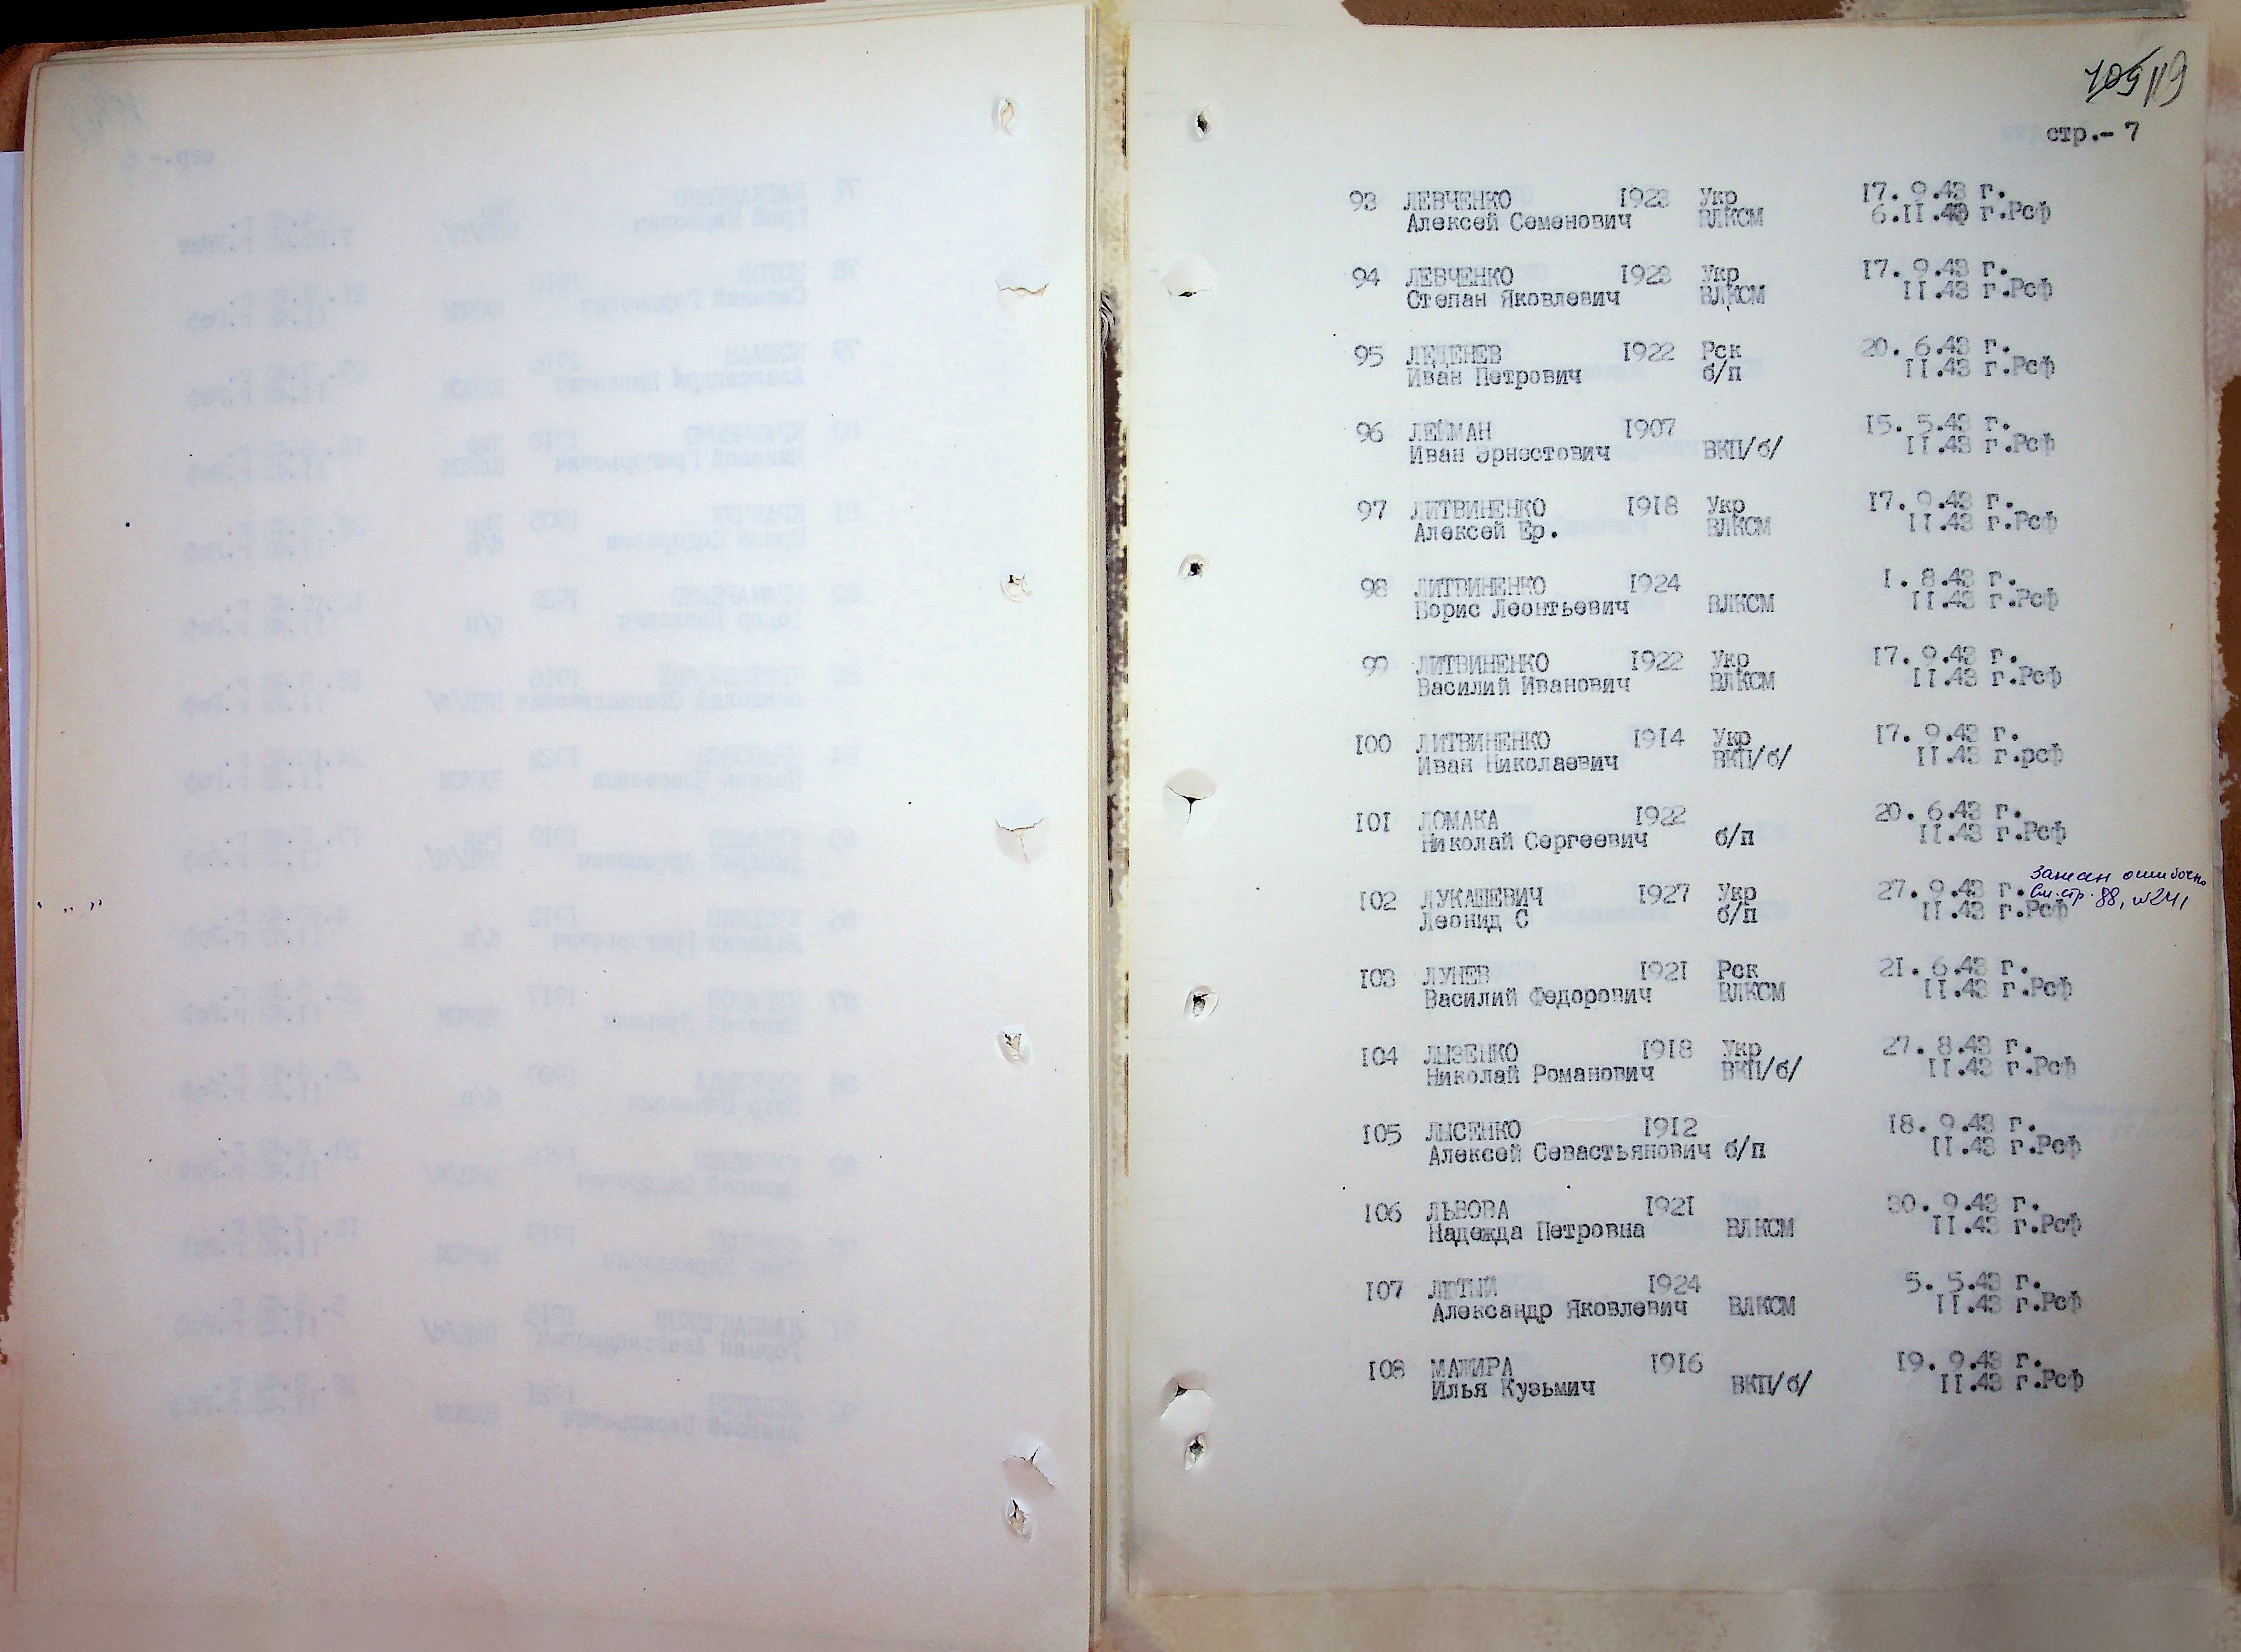 109 119
стр.- 7
93 ЛЕВЧЕНКО 1923 Укр 17. 9.43 г.
Алексей Семенович ВЛКСМ 6.II.43 г.Рсф
94 ЛЕВЧЕНКО 1923 Укр 17. 9.43 г.
Степан Яковлевич ВЛКСМ II.43 г.Рсф
95 ЛЕДЕНЕВ 1922 Рск 20. 6.43 г.
Иван Петрович б/п II.43 г.Рсф
96 ЛЕЙМАН 1907 15. 5.43 г.
Иван Эрнестович ВКП/б/ II.43 г.Рсф
97 ЛИТВИНЕНКО 1918 Укр 17. 9.43 г.
Алексей Ер. ВЛКСМ II.43 г.Рсф
98 ЛИТВИНЕНКО 1924 1. 8.43 г.
Борис Леонтьевич ВЛКСМ II.43 г.Рсф
99 ЛИТВИНЕНКО 1922 Укр 17. 9.43 г.
Василий Иванович ВЛКСМ II.43 г.Рсф
100 ЛИТВИНЕНКО 1914 Укр 17. 9.43 г.
Иван Николаевич ВКП/б/ II.43 г.рсф
101 ЛОМАКА 1922 20. 6.43 г.
Николай Сергеевич б/п II.43 г.Рсф
102 ЛУКАШЕВИЧ 1927 Укр 27. 9.43 г. Занесен ошибочно
Леонид С б/п II.43 г.Рсф См. стр. 88, №241
103 ЛУНЕВ 1921 Рск 21. 6.43 г.
Василий Федорович ВЛКСМ II.43 г.Рсф
104 ЛЫЗЕНКО 1918 Укр 27. 8.43 г.
Николай Романович ВКП/б/ II.43 г.Рсф
105 ЛЫСЕНКО 1912 18. 9.43 г.
Алексей Севастьянович б/п II.43 г.Рсф
106 ЛЬВОВА 1921 30. 9.43 г.
Надежда Петровна ВЛКСМ II.43 г.Рсф
107 ЛЮТЫЙ 1924 5. 5.43 г.
Александр Яковлевич ВЛКСМ II.43 г.Рсф
108 МАЖИРА 1916 19. 9.43 г.
Илья Кузьмич ВКП/б/ II.43 г.Рсф